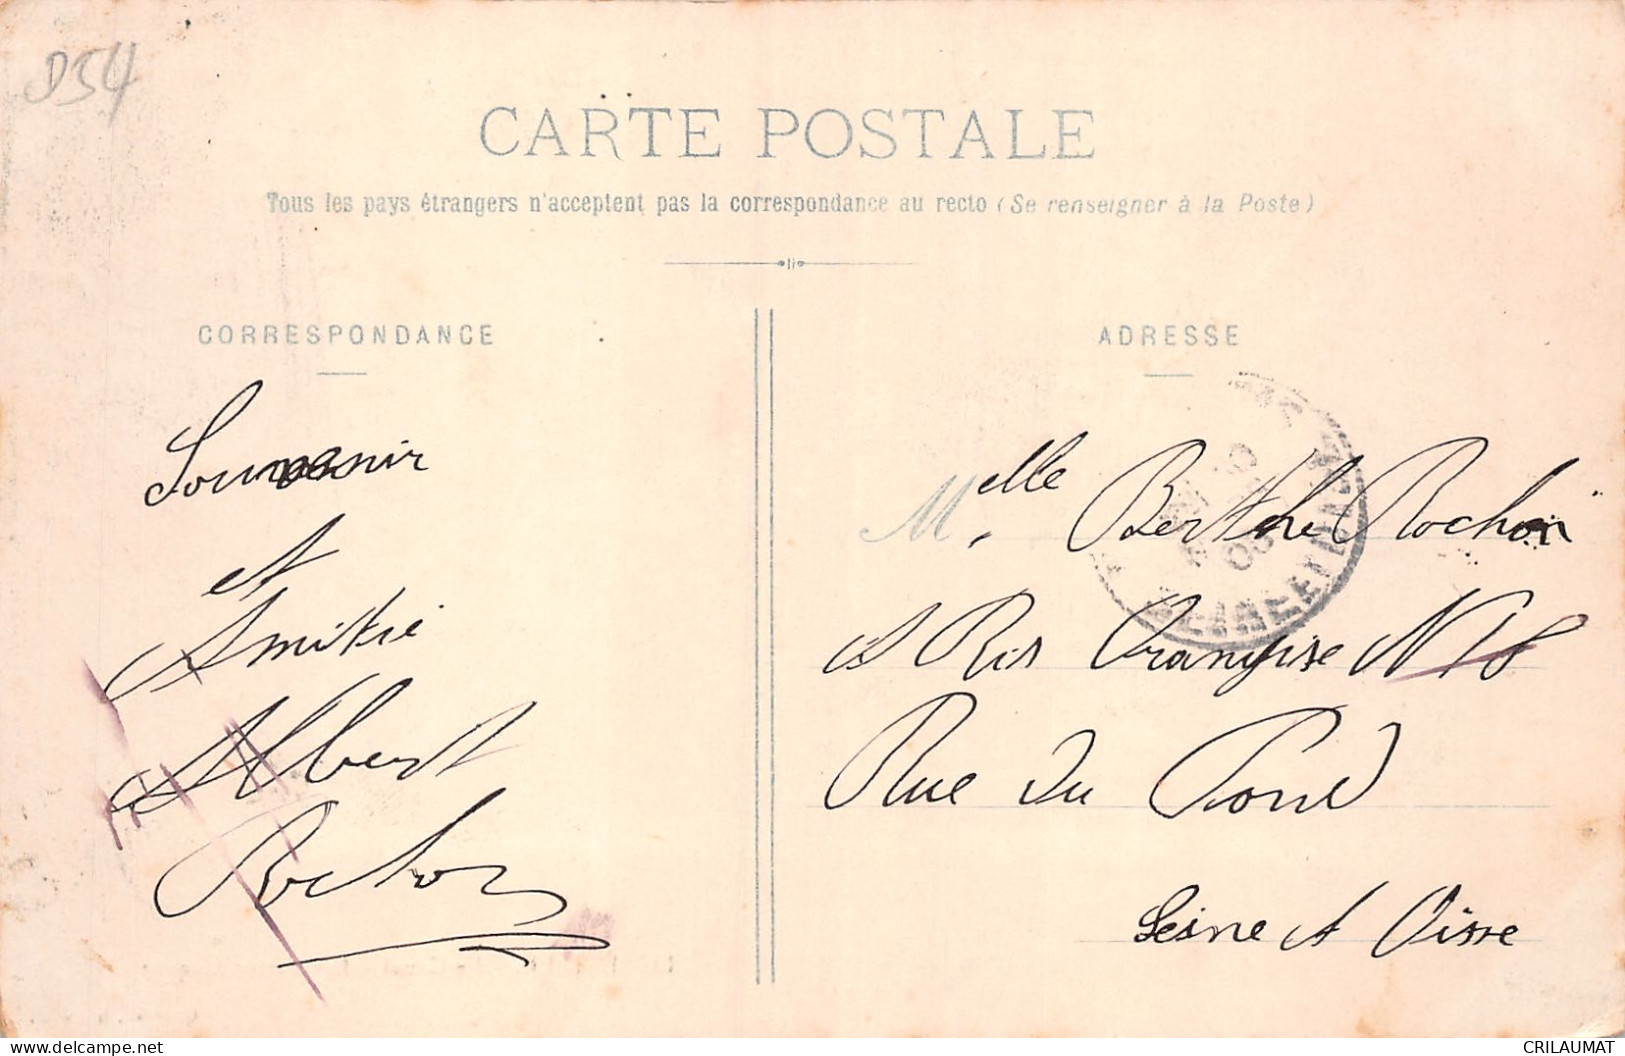 D54
CARTE POSTALE
Tous les pays étrangers n'acceptent pas la correspondance au recto (Se renseigner à la Poste)
CORRESPONDANCE
Souvenir
et
Amitié
Albert
Rochon
ADRESSE
Melle Berthe Rochon
à Ris Orangise N 18
Rue Du Pond
Seine et Oisse
CRILAUMAT